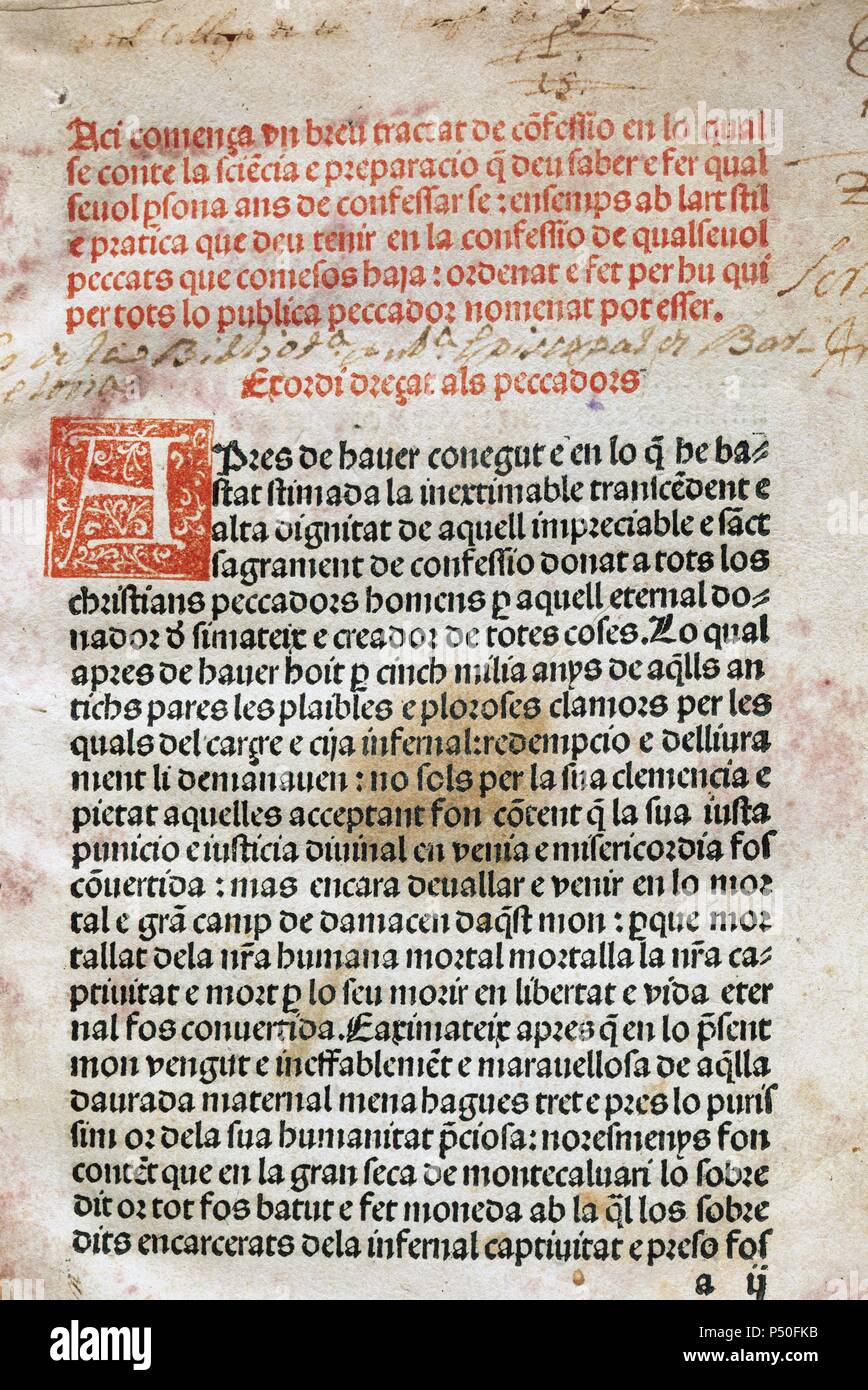 Aci comença vn breu tractat de cōfessio en lo qual
se conte la sciēcia e preparacio q̄ deu saber e fer qual
seuol ꝑsona ans de confessar se : ensemps ab lart stil
e pratica que deu tenir en la confessio de qualseuol
peccats que comesos haja : ordenat e fet per hu qui
per tots lo publica peccador nomenat pot esser.
Exordi dreçat als peccadors
APres de hauer conegut e en lo q̄ he ba⸗
stat stimada la inextimable transcēdent e
alta dignitat de aquell impreciable e sāct
sagrament de confessio donat a tots los
christians peccadors homens ꝑ aquell eternal do⸗
nador d̄ simateix e creador de totes coses. Lo qual
apres de hauer hoit ꝑ cinch milia anys de aq̄lls an
tichs pares les plaibles e ploroses clamors per les
quals del carçre e cija infernal: redempcio e delliura
ment li demanauen : no sols per la sua clemencia e
pietat aquelles acceptant fon cōtent q̄ la sua iusta
punicio e iusticia diuinal en venia e misericordia fos
cōuertida : mas encara deuallar e venir en lo mor
tal e grā camp de damacen daq̄st mon : ꝑque mor
tallat dela nr̄a humana mortal mortalla la nr̄a ca⸗
ptiuitat e mort ꝑ lo seu morir en libertat e vida eter
nal fos conuertida. Eaximateix apres q̄ en lo p̄sent
mon vengut e ineffablemēt e marauellosa de aq̄lla
daurada maternal mena hagues tret e pres lo puris
sim or dela sua humanitat p̄ciosa: noresmenys fon
contēt que en la gran seca de montecaluari lo sobre
dit or tot fos batut e fet moneda ab la q̄l los sobre
dits encarcerats dela infernal captiuitat e preso fos
a ij
alamy
Image ID: P50FKB
www.alamy.com